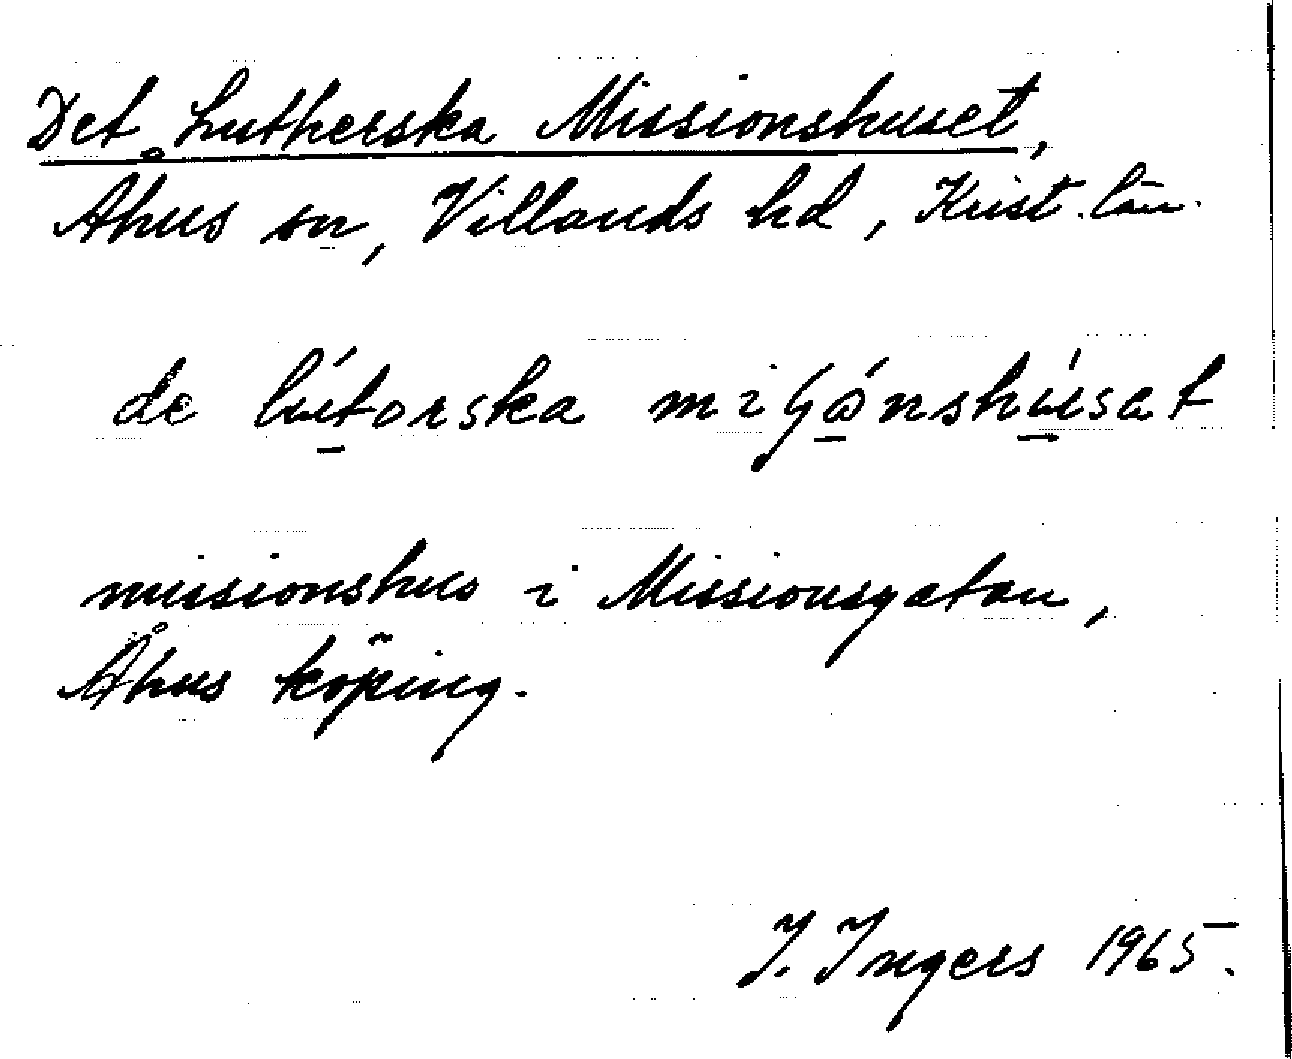 Det Lutherska Missionshuset,
Åhus sn, Villands hd, Krist. län.
de lútorska miʃǿnshúsat
missionshus i Missionsgatan,
Åhus köping.
I. Ingers 1965.